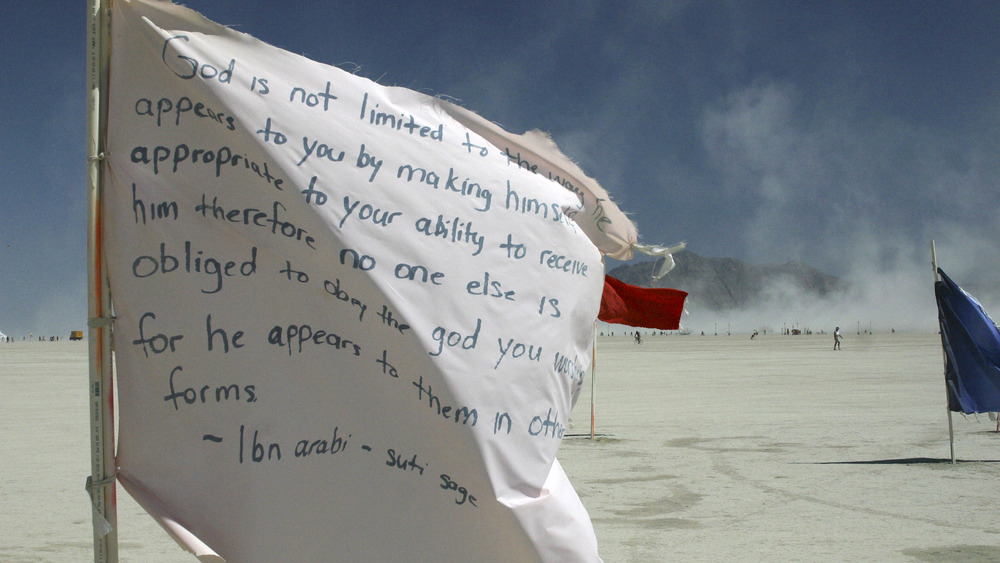 God is not limited to the way he
appears to you by making himself
appropriate to your ability to receive
him therefore no one else is
obliged to obey the god you worship
for he appears to them in other
forms.
~ Ibn arabi - sufi sage